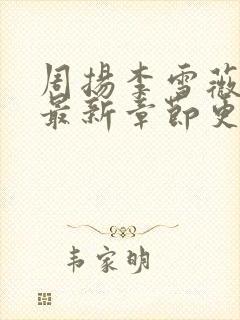 周扬李雪薇
最新章节更
韦家明